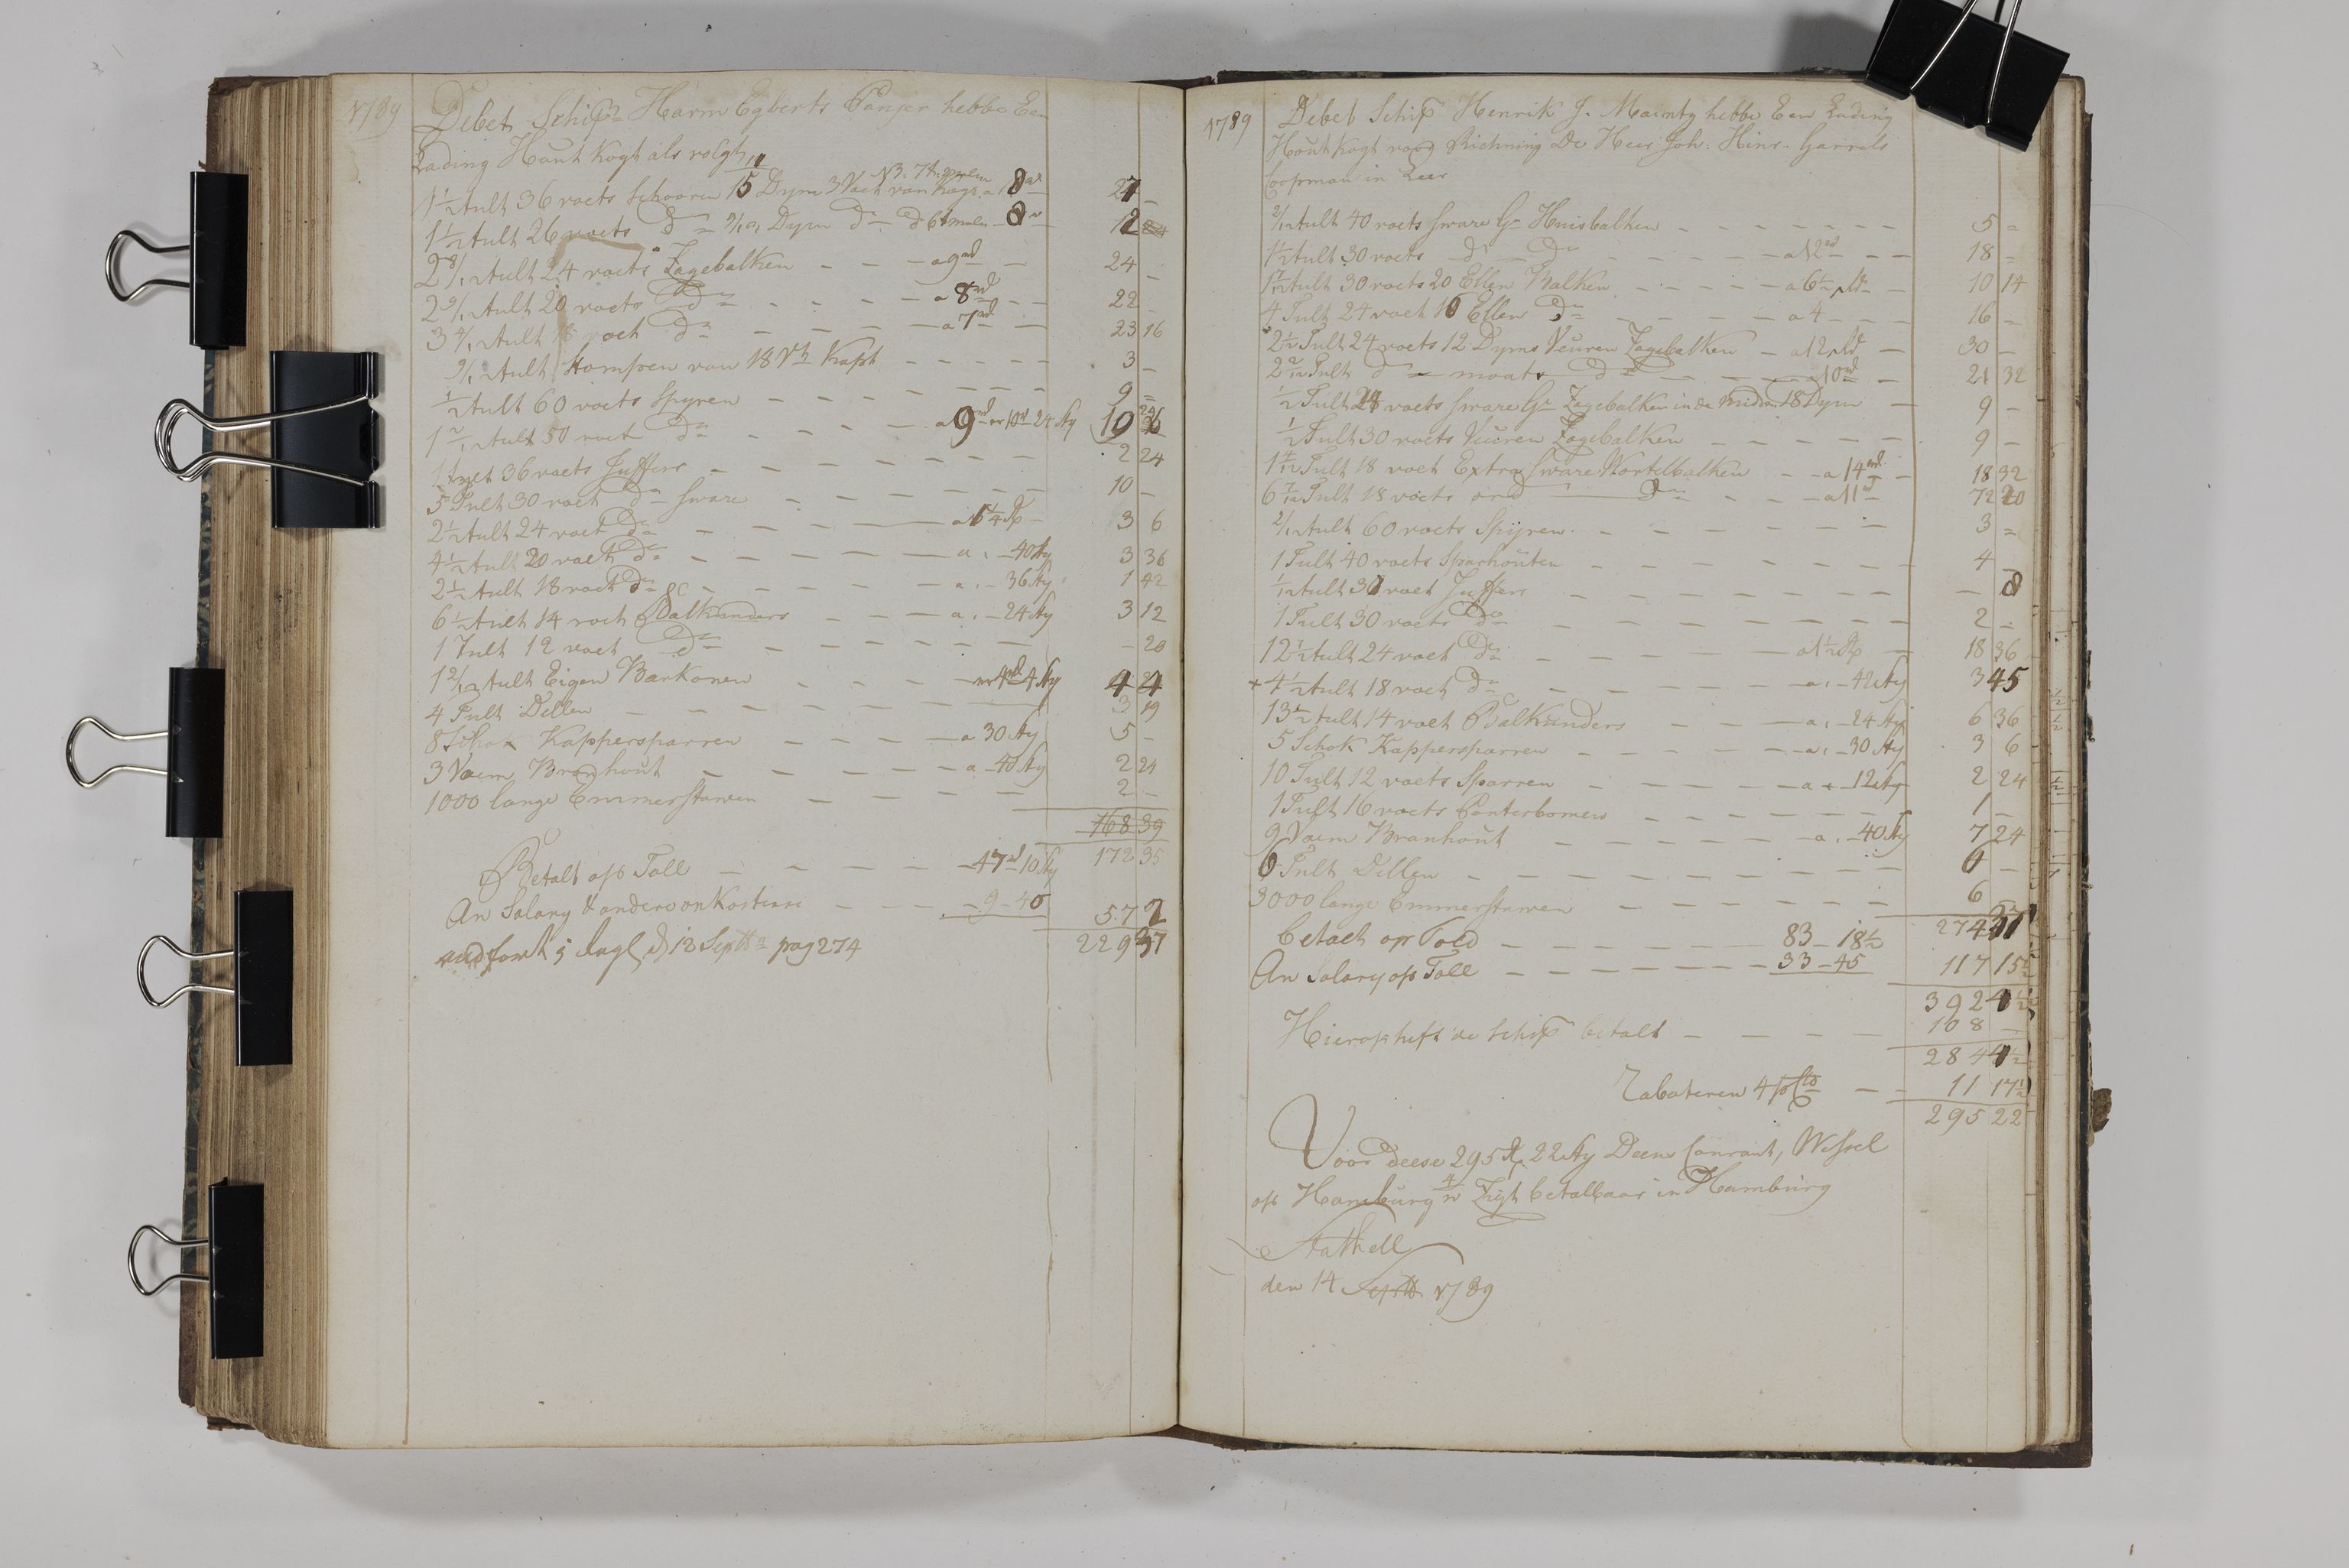 1789 Debet Schipr Harm Egberts Panjer hebbe Een
Lading Hout kogt als volgt
1½ Tult 36 voets Schooren 15 Dym 3 Voet van 8
1½ Tult 26 voets Do 9/12 Dym Do 12
2 8/12 Tult 24 voets Zagebalken a 9 rd 24 -
2 9/12 Tult 20 voets Do a 8 rd 22 -
3 4/12 Tult 18 voet Do a 7 rd 23 16
9/12 Tult Stompen van 18 vt 3 -
½ Tult 60 voets Spyren 9 =
1 2/12 Tult 50 voet Do a 9 rd 10 rd 24 sty 10
1 Tult 36 voets Juffers 2 24
5 Tult 30 voet Do sware 10 -
2½ Tult 24 voet Do a 1¼ Rp 3 6
4½ Tult 20 voet Do a - 40 sty 3 36
2½ Tult 18 voet Do a - 36 sty 1 42
6½ Tult 14 voet Balkunders a - 24 sty 3 12
1 Tult 12 voet Do - 20
1 2/12 Tult Eigen Barkonen 4 rd 4 sty 4 4
4 Tult Dellen 3 19
8 Schok Kappersparren a 30 sty 5 -
3 Vaem Branhout a - 40 sty 2 24
1000 lange Emmerstawen 2 -
168 39
Betalt op Toll 47 rd 10 sty 172 35
An Salary & andere onkostens 9 - 40 57 2
229 37
12 Septbr pag 274
1789 Debet Schipr Henrik J. Mainty hebbe Een Lading
Hout kogt voor Richning De Heer Joh. Hinr. Garrels
Coopman in Leer
2/12 Tult 40 voets sware Gr Huisbalken 5 =
1½ Tult 30 voets Do Do a 12 rd 18 =
Tult 30 voets 20 Ellen Balken a 6½ rd 10 14
4 Tult 24 voet 16 Ellen Do a 4 16 -
2½ Tult 24 voets 12 Dyms Veuren Zagebalken a 12 rd 30 -
2 2/12 Tult Do maats Do 10 rd 21 32
½ Tult 28 voets sware Gr Zagebalken in de midden 18 Dym 9 -
½ Tult 30 voets Veuren Zagebalken 9 -
1 4/12 Tult 18 voet Extra sware Wortelbalken a 14 rd 18 32
6 7/12 Tult 18 voets ord Do a 11 rd 72 20
2/12 Tult 60 voets Spyren 3 =
1 Tult 40 voets Sparhouten 4 -
Tult 30 voet Juffers - 8
1 Tult 30 voets Do 2 -
12½ Tult 24 voet Do a 1½ Rp 18 36
+ 4½ Tult 18 voet Do a - 42 sty 3 45
13½ Tult 14 voet Balkunders a - 24 sty 6 36
5 Schok Kappersparren a - 30 sty 3 6
10 Tult 12 voets Sparren a - 12 sty 2 24
1 Tult 16 voets Ponterbomen 1 -
9 Vaem Branhout a - 40 sty 7 24
6 Tult Dellen 6 -
3000 lange Emmerstawen 6 -
274
betaelt op Told 83 - 18½
An Salary op Toll 33 - 45 117 15½
392
Hierop heft de Schipr betalt 108 -
284
Rabateren 4 pCto 11 17½
295 22
Voor deese 295 Rp 22 sty Deens Courant, Wessel
op Hamburg Zigt betalbaar in Hamburg
Stathell
den 14 Septbr 1789